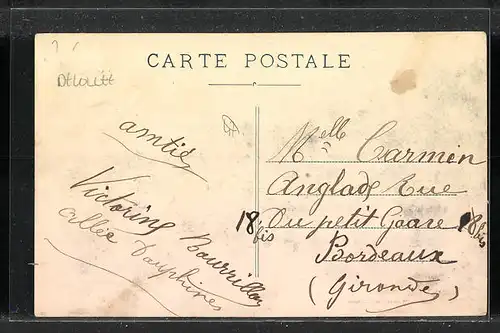 CARTE POSTALE
DECOLLÉE
amtié
Victorine Bourrillon
allée Dauphine
Melle Carmen
Anglade Rue
18 bis Du petit Goave 18 bis
Bordeaux
(Gironde)